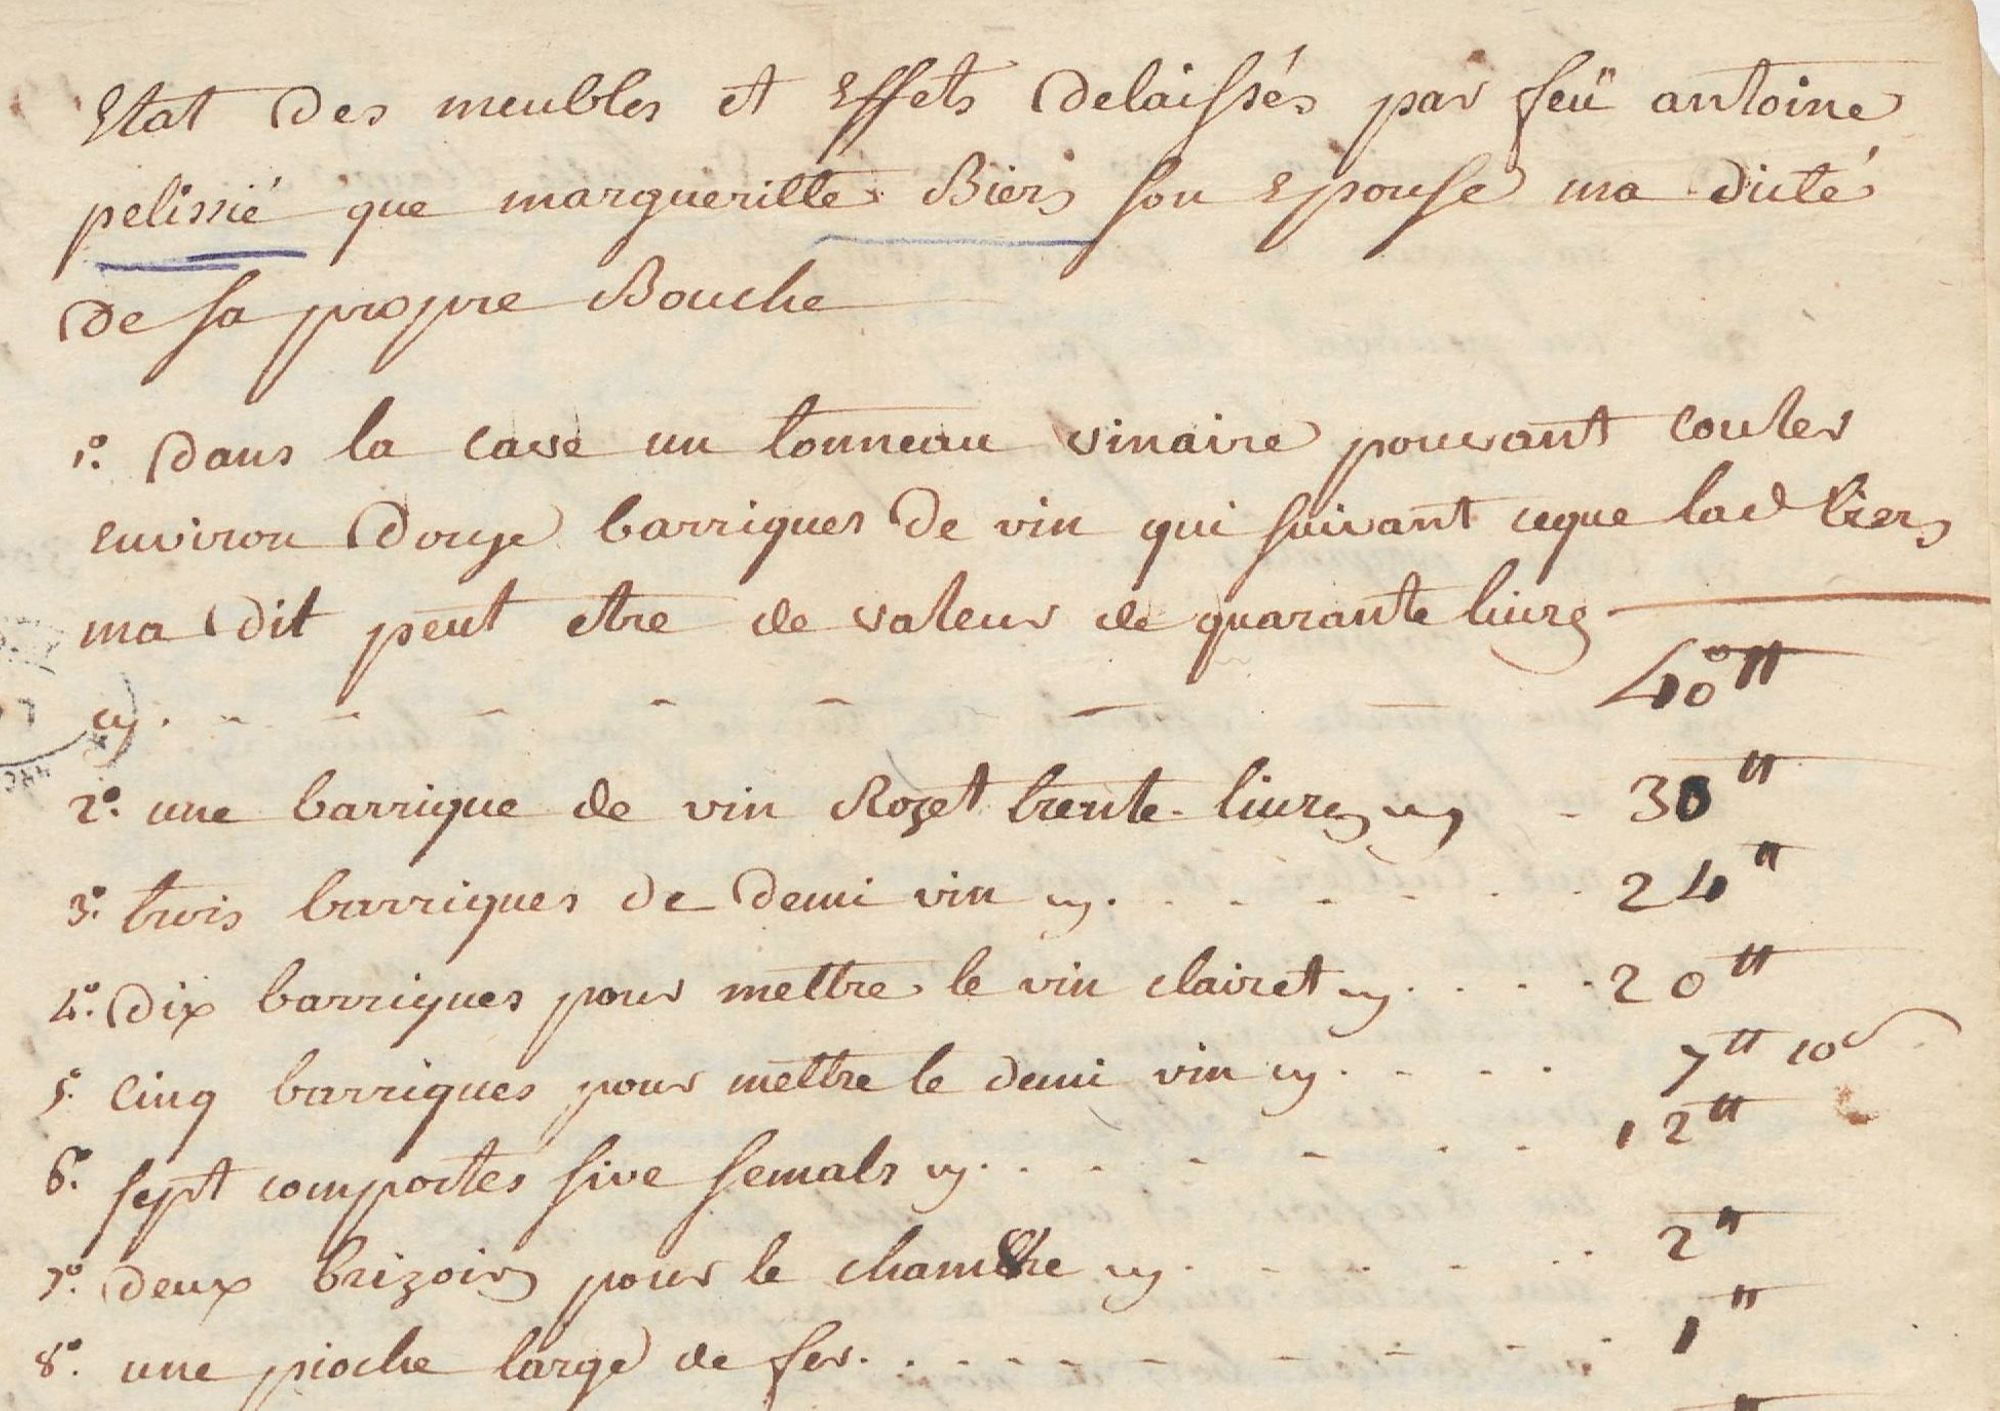 Etat Des meubles et Effets Delaissés par feü antoine
pelissié que margueritte Biers son Epouse ma dicté
De sa propre Bouche
1º. Dans la cave un tonneau vinaire pouvant couler
environ Douze barriques De vin qui suivant ceque lad biers
ma Dit peut etre de valeur de quarante livres
cy. - - - - - - - 40 ₶
2º. une barrique de vin Rozet trente livres cy - 30 ₶
3º. trois barriques de Demi vin cy. . . . . . . 24 ₶
4º. Dix barriques pour mettre le vin clairet cy. . . . 20 ₶
5º. Cinq barriques pour mettre le demi vin cy. . . . 7 ₶ 10 s
6º. sept comportes sive semals cy. . . . . . . 12 ₶
7º. deux brizoirs pour le chambre cy. . . . . . 2 ₶
8º. une pioche large de fer. . . . . . . . . . 1 ₶